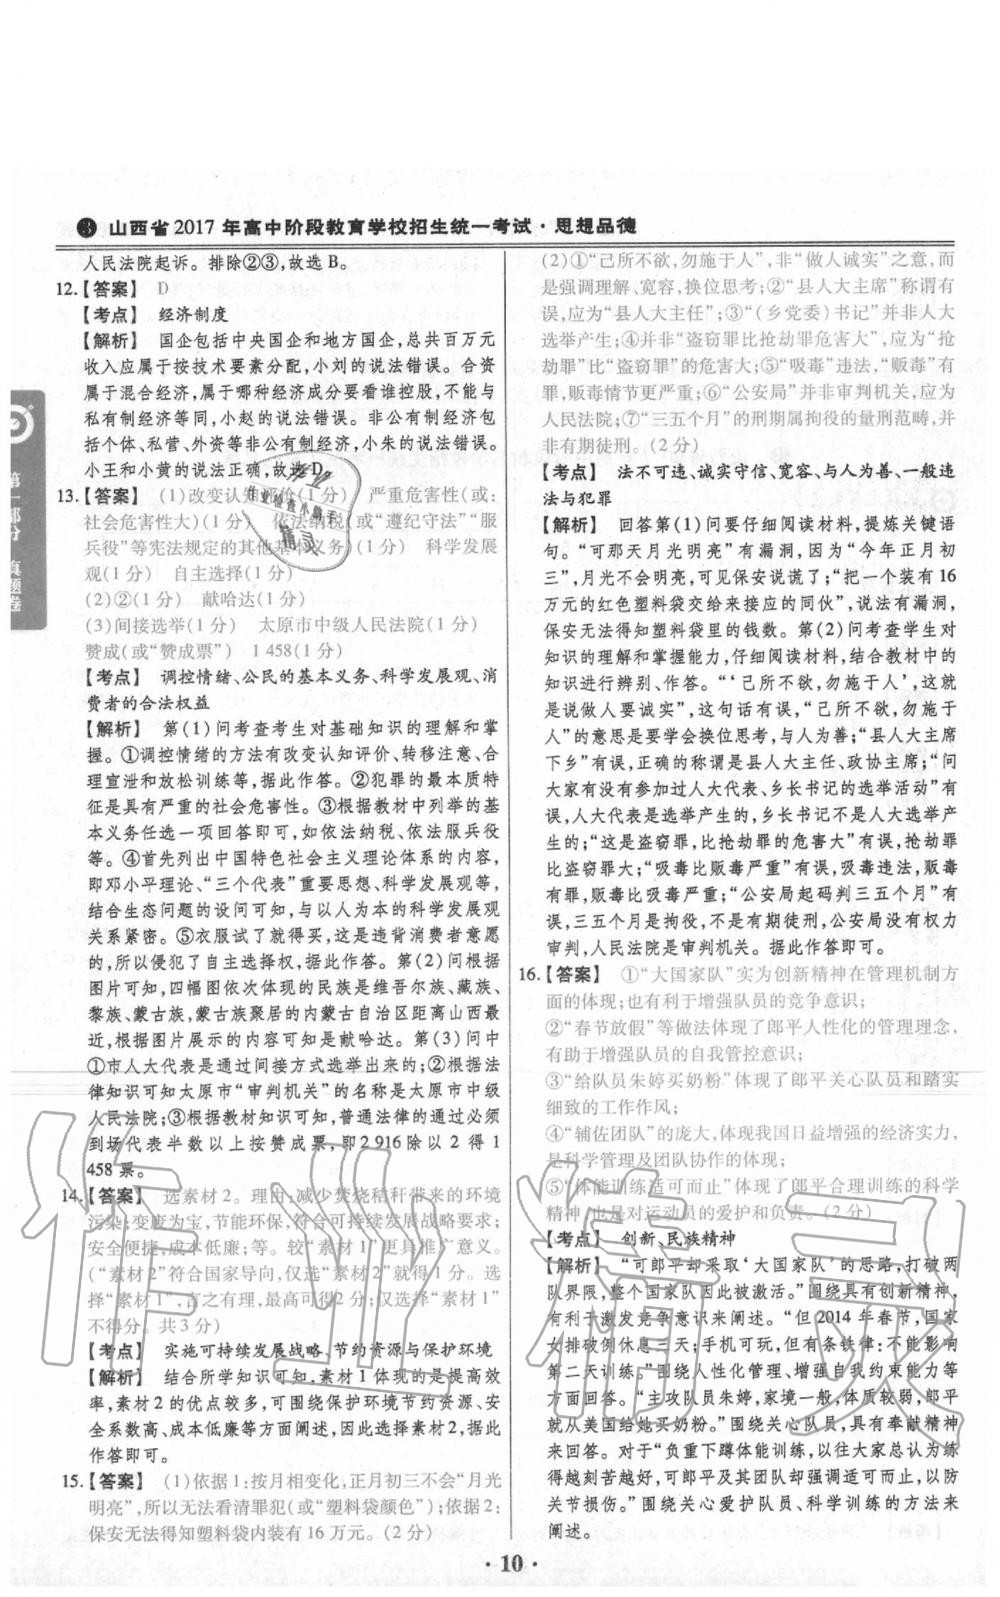 ❸ 山西省2017年高中阶段教育学校招生统一考试·思想品德
人民法院起诉。排除②③,故选B。
12.【答案】 D
【考点】 经济制度
【解析】 国企包括中央国企和地方国企,总共百万元
收入应属于按技术要素分配,小刘的说法错误。合资
属于混合经济,属于哪种经济成分要看谁控股,不能与
私有制经济等同,小赵的说法错误。非公有制经济包
括个体、私营、外资等非公有制经济,小朱的说法错误。
小王和小黄的说法正确,故选D。
13.【答案】 (1)改变认知评价(1分) 严重危害性(或:
社会危害性大)(1分) 依法纳税(或“遵纪守法”“服
兵役”等宪法规定的其他基本义务)(1分) 科学发展
观(1分) 自主选择(1分)
(2)②(1分) 献哈达(1分)
(3)间接选举(1分) 太原市中级人民法院(1分)
赞成(或“赞成票”) 1 458(1分)
【考点】 调控情绪、公民的基本义务、科学发展观、消
费者的合法权益
【解析】 第(1)问考查考生对基础知识的理解和掌
握。①调控情绪的方法有改变认知评价、转移注意、合
理宣泄和放松训练等,据此作答。②犯罪的最本质特
征是具有严重的社会危害性。③根据教材中列举的基
本义务任选一项回答即可,如依法纳税、依法服兵役
等。④首先列出中国特色社会主义理论体系的内容,
即邓小平理论、“三个代表”重要思想、科学发展观等,
结合生态问题的设问可知,与以人为本的科学发展观
关系紧密。⑤衣服试了就得买,这是违背消费者意愿
的,所以侵犯了自主选择权。据此作答。第(2)问根据
图片可知,四幅图依次体现的民族是维吾尔族、藏族、
黎族、蒙古族,蒙古族聚居的内蒙古自治区距离山西最
近,根据图片展示的内容可知是献哈达。第(3)问中
①市人大代表是通过间接方式选举出来的;②根据法
律知识可知太原市“审判机关”的名称是太原市中级
人民法院;③根据教材知识可知,普通法律的通过必须
到场代表半数以上按赞成票,即2 916除以2得1
458票。
14.【答案】 选素材2。理由:减少焚烧秸秆带来的环境
污染;变废为宝,节能环保,符合可持续发展战略要求;
安全便捷,成本低廉;等。较“素材1”更具推广意义。
(“素材2”符合国家导向,仅选“素材2”就得1分。选
择“素材1”,言之有理,最高可得2分;仅选择“素材1”
不得分。共3分)
【考点】 实施可持续发展战略、节约资源与保护环境
【解析】 结合所学知识可知,素材1体现的是提高效
率,素材2的优点较多,可围绕保护环境节约资源、安
全系数高、成本低廉等方面阐述,因此选择素材2。据此
作答即可。
15.【答案】 (1)依据1:按月相变化,正月初三不会“月光
明亮”,所以无法看清罪犯(或“塑料袋颜色”);依据2:
保安无法得知塑料袋内装有16万元。(2分)
(2)①“己所不欲,勿施于人”,非“做人诚实”之意,而
是强调理解、宽容,换位思考;②“县人大主席”称谓有
误,应为“县人大主任”;③“(乡党委)书记”并非人大
选举产生;④并非“盗窃罪比抢劫罪危害大”,应为“抢
劫罪”比“盗窃罪”的危害大;⑤“吸毒”违法,“贩毒”犯
罪,贩毒情节更严重;⑥“公安局”并非审判机关,应为
人民法院;⑦“三五个月”的刑期属拘役的量刑范畴,并
非有期徒刑。(2分)
【考点】 法不可违、诚实守信、宽容、与人为善、一般违
法与犯罪
【解析】 回答第(1)问要仔细阅读材料,提炼关键语
句。“可那天月光明亮”有漏洞,因为“今年正月初
三”,月光不会明亮,可见保安说谎了;“把一个装有16
万元的红色塑料袋交给来接应的同伙”,说法有漏洞,
保安无法得知塑料袋里的钱数。第(2)问考查学生对
知识的理解和掌握能力,仔细阅读材料,结合教材中的
知识进行辨别、作答。“‘己所不欲,勿施于人’,这就
是说做人要诚实”,这句话有误,“己所不欲,勿施于
人”的意思是要学会换位思考,与人为善;“县人大主席
下乡”有误,正确的称谓是:县人大主任、政协主席;“问
大家有没有参加过人大代表、乡长书记的选举活动”有
误,人大代表是选举产生的,乡长书记不是人大选举产
生的;“这是盗窃罪,比抢劫罪的危害大”有误,抢劫罪
比盗窃罪大;“吸毒比贩毒严重”有误,吸毒违法,贩毒
有罪,贩毒比吸毒严重;“公安局起码判三五个月”有
误,三五个月是拘役,不是有期徒刑,公安局没有权力
审判,人民法院是审判机关。据此作答即可。
16.【答案】 ①“大国家队”实为创新精神在管理机制方
面的体现;也有利于增强队员的竞争意识;
②“春节放假”等做法体现了郎平人性化的管理理念,
有助于增强队员的自我管控意识;
③“给队员朱婷买奶粉”体现了郎平关心队员和踏实
细致的工作作风;
④“辅佐团队”的庞大,体现我国日益增强的经济实力,
是科学管理及团队协作的体现;
⑤“体能训练适可而止”体现了郎平合理训练的科学
精神,也是对运动员的爱护和负责。(2分)
【考点】 创新、民族精神
【解析】 “可郎平却采取‘大国家队’的思路,打破两
队界限,整个国家队因此被激活。”围绕具有创新精神、
有利于激发竞争意识来阐述。“但2014年春节,国家
女排破例休息三天;手机可玩,但有条铁律:不能影响
第二天训练。”围绕人性化管理、增强自我约束能力等
方面回答。“主攻队员朱婷,家境一般,体质较弱,郎平
就从美国给她买奶粉。”围绕关心队员,具有奉献精神
来回答。对于“负重下蹲体能训练,以往大家总认为练
得越刻苦越好,可郎平却总是适可而止,队员受伤更少,
夺关而不费劲。”围绕关心爱护队员、科学训练的方法来
阐述。
第一部分 真题卷
作业
作业检查小助手
精灵
作业精灵
· 10 ·